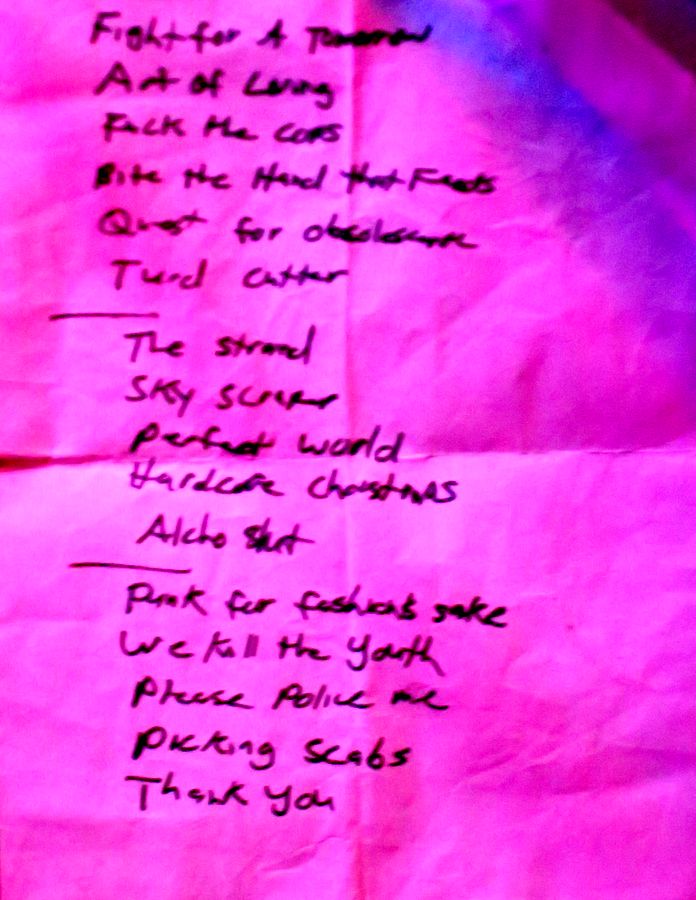 Fight for A Tomorrow
Art of Living
Fuck the cops
Bite the Hand that Feeds
Quest for obsolescence
Turd Cutter
The strand
Sky scraper
perfect world
Hardcore Christmas
Alcho Slut
Punk for fashions sake
We Kill the Youth
Please Police me
Picking Scabs
Thank You